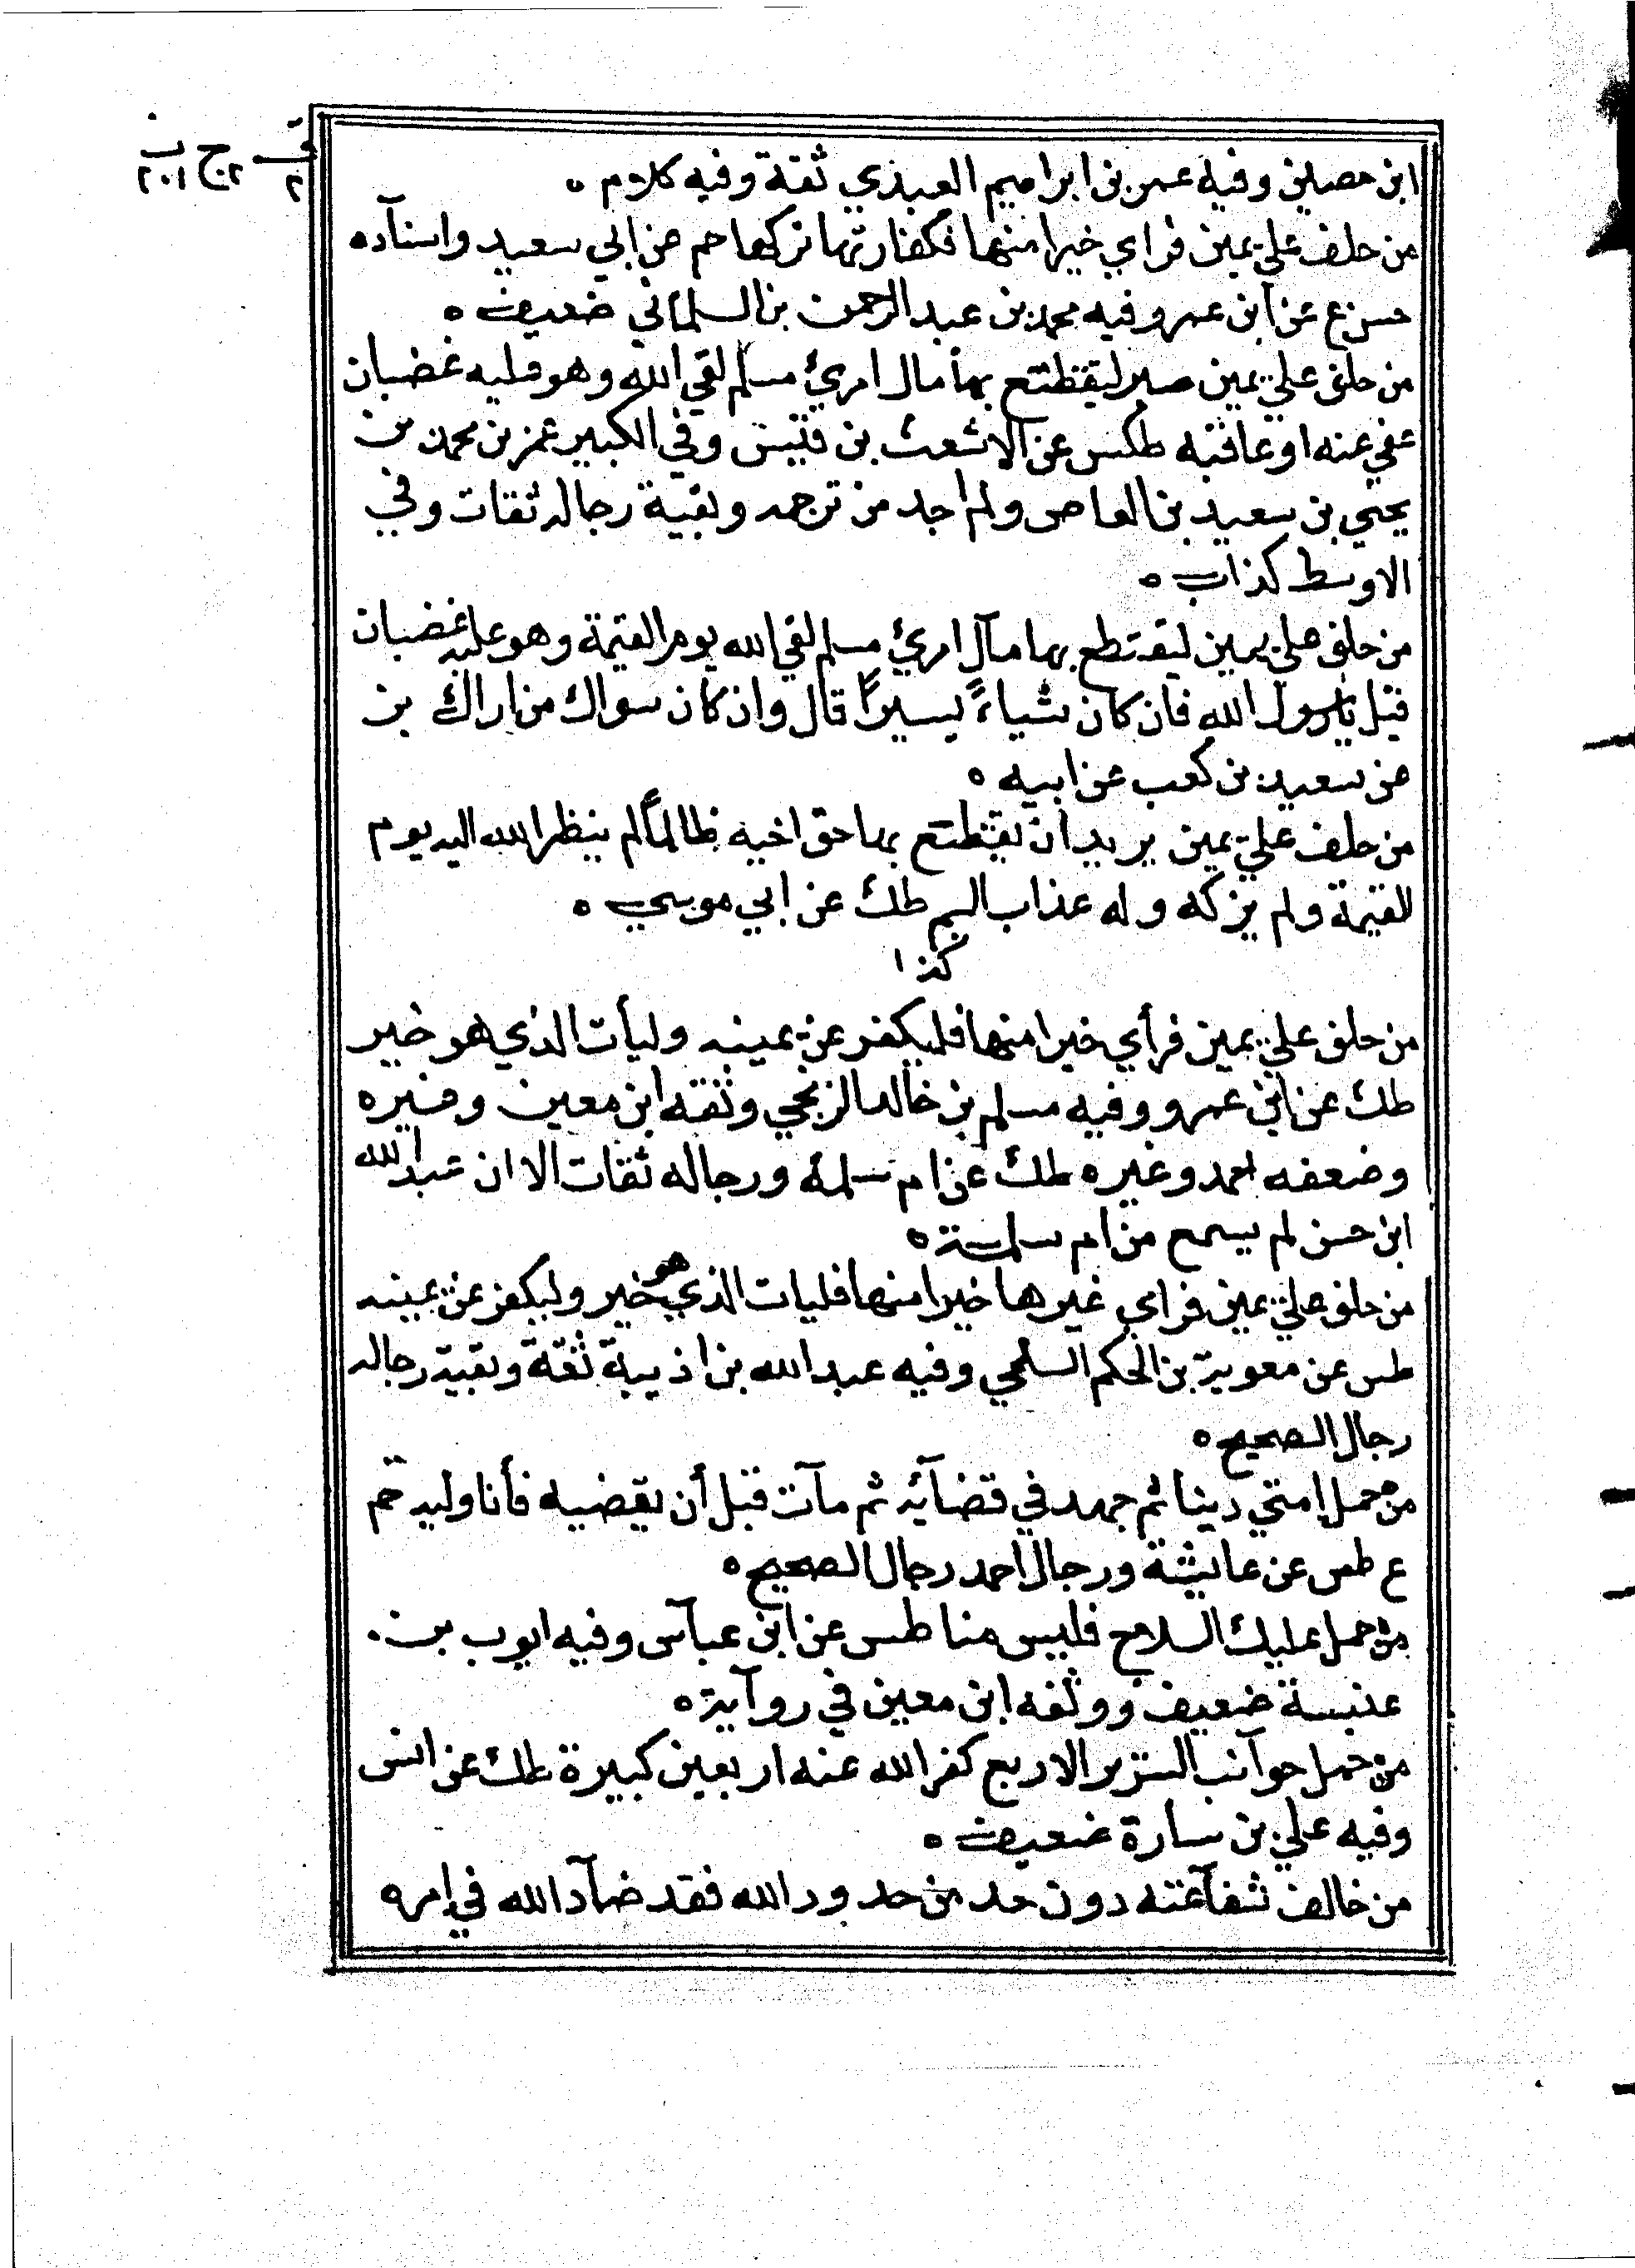 ابن حصين وفيه عمر بن ابراهيم العبدي ثقة وفيه كلام ه
من حلف علي يمين فراي خيرا منها فكفارتها تركها حم عن ابي سعيد واسناده
حسن ع عن ابن عمر وفيه محمد بن عبد الرحمن بن السلماني ضعيف ه
من حلف علي يمين صبر ليقتطع بها مال امرئ مسلم لقي الله وهو عليه غضبان
عفي عنه او عاقبه طكس عن الاشعث بن قيس وفي الكبير عمر بن محمد بن
يحيي بن سعيد بن العاص ولم اجد من ترجمه وبقية رجاله ثقات وفي
الاوسط كذاب ه
من حلف علي يمين ليقتطع بها مآل امرئ مسلم لقي الله يوم القيمة وهو عليه غضبان
قيل يارسول الله فان كان شياءً يسيرًا قال وان كان سواك من اراك بن
عن سعيد بن كعب عن ابيه ه
من حلف علي يمين يريد ان يقتطع بها حق اخيه ظالمًا لم ينظر الله اليه يوم
القيمة ولم يزكه وله عذاب اليم طك عن ابي موسي ه
كذا
من حلف علي يمين فرأي خيرا منها فليكفر عن يمينه وليأت الذي هو خير
طك عن ابن عمرو وفيه مسلم بن خالد الزنجي وثقه ابن معين وغيره
وضعفه احمد وغيره طك عن ام سلمة ورجاله ثقات الا ان عبد الله
ابن حسن لم يسمع من ام سلمة ه
من حلف علي يمين فراي غيرها خيرا منها فليات الذي هو خير وليكفر عن يمينه
طس عن معوية بن الحكم السلمي وفيه عبد الله بن اذيبة ثقة وبقية رجاله
رجال الصحيح ه
من حمل امتي دينا ثم جهد في قضآئه ثم مآت قبل أن يقضيه فأنا وليه حم
ع طس عن عايشة ورجال احمد رجال الصحيح ه
من حمل عليك السلاح فليس منا طس عن ابن عبآس وفيه ايوب بن
عنبسة ضعيف ووثقه ابن معين في روآية ه
من حمل جوآنب السرير الاربع كفر الله عنه اربعين كبيرة طك عن انس
وفيه علي بن سارة ضعيف ه
من خالف شفآعته دون حد من حدود الله فقد ضآد الله في امره